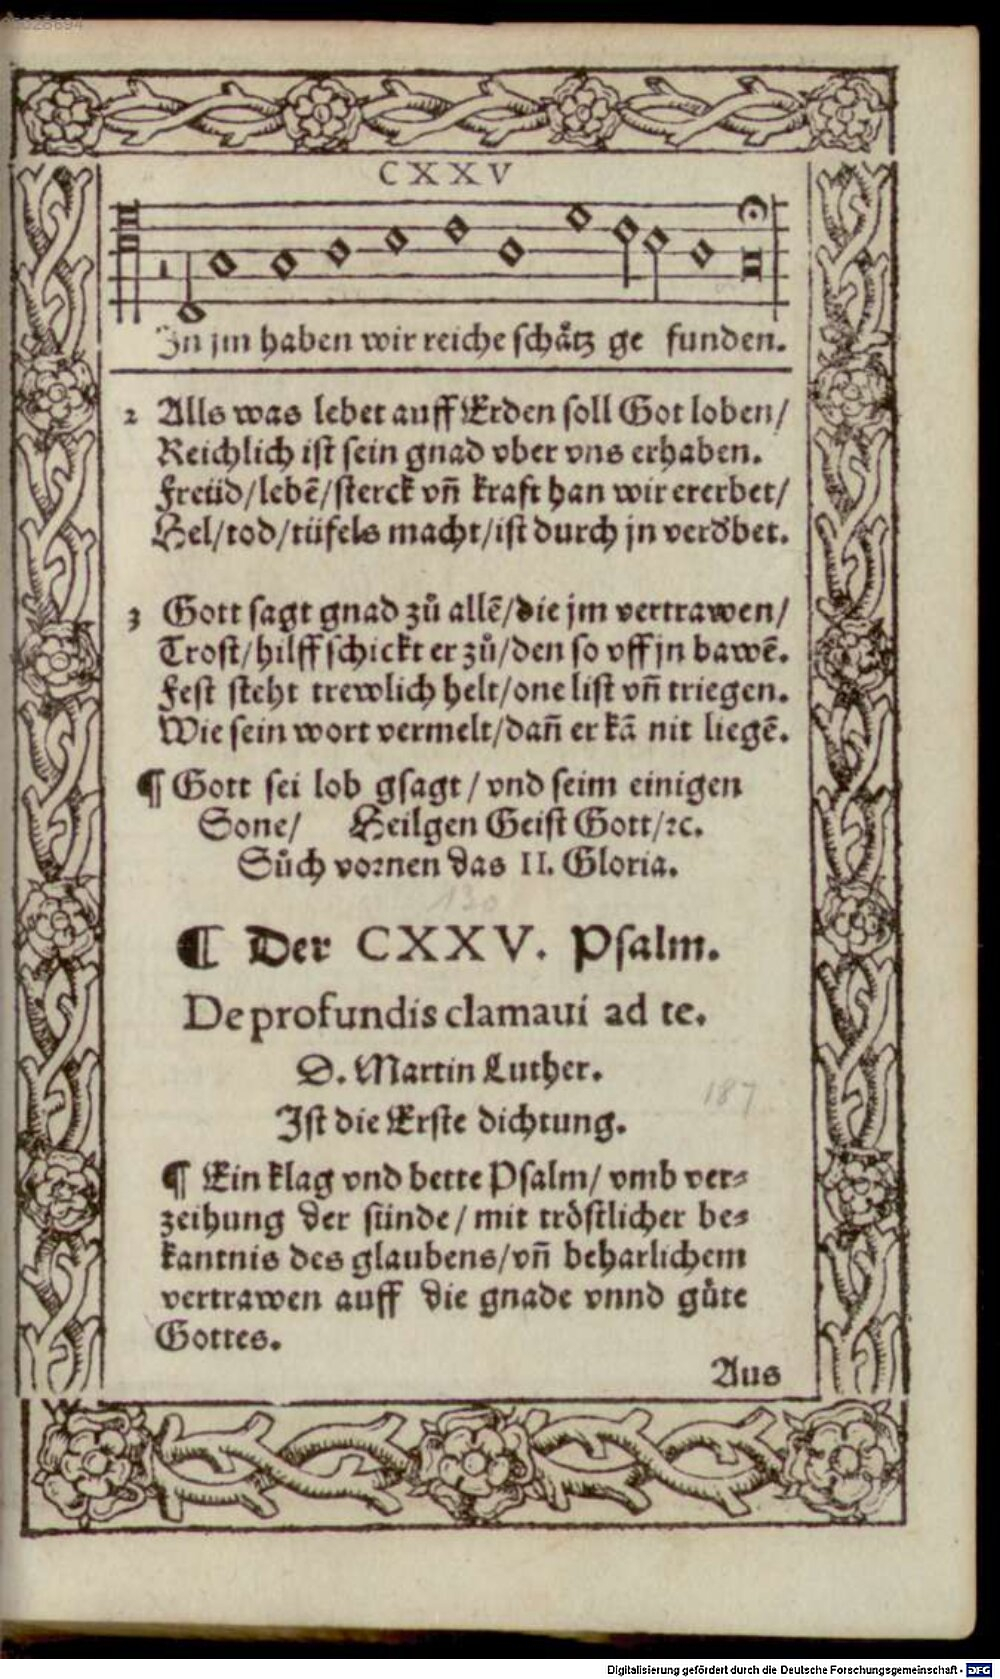 CXXV
In jm haben wir reiche schåtz ge funden.
2 Alls was lebet auff Erden soll Got loben/
Reichlich ist sein gnad vber vns erhaben.
Freüd/lebē/sterck vñ kraft han wir ererbet/
Hel/tod/tüfels macht/ist durch jn verdͤbet.
3 Gott sagt gnad zů allē/die jm vertrawen/
Trost/hilff schickt er zů/den so vff jn bawē.
Fest steht trewlich helt/one list vñ triegen.
Wie sein wort vermelt/dañ er kā nit liegē.
¶ Gott sei lob gsagt/vnd seim einigen
Sone/ Heilgen Geist Gott/ꝛc.
Sůch vornen das II. Gloria.
130
¶ Der CXXV. Psalm.
De profundis clamaui ad te.
D. Martin Luther.
187
Ist die Erste dichtung.
¶ Ein klag vnd bette Psalm/ vmb ver⸗
zeihung der sünde/mit tröstlicher be⸗
kantnis des glaubens/vñ beharlichem
vertrawen auff die gnade vnnd gůte
Gottes.
Aus
Digitalisierung gefördert durch die Deutsche Forschungsgemeinschaft - DFG